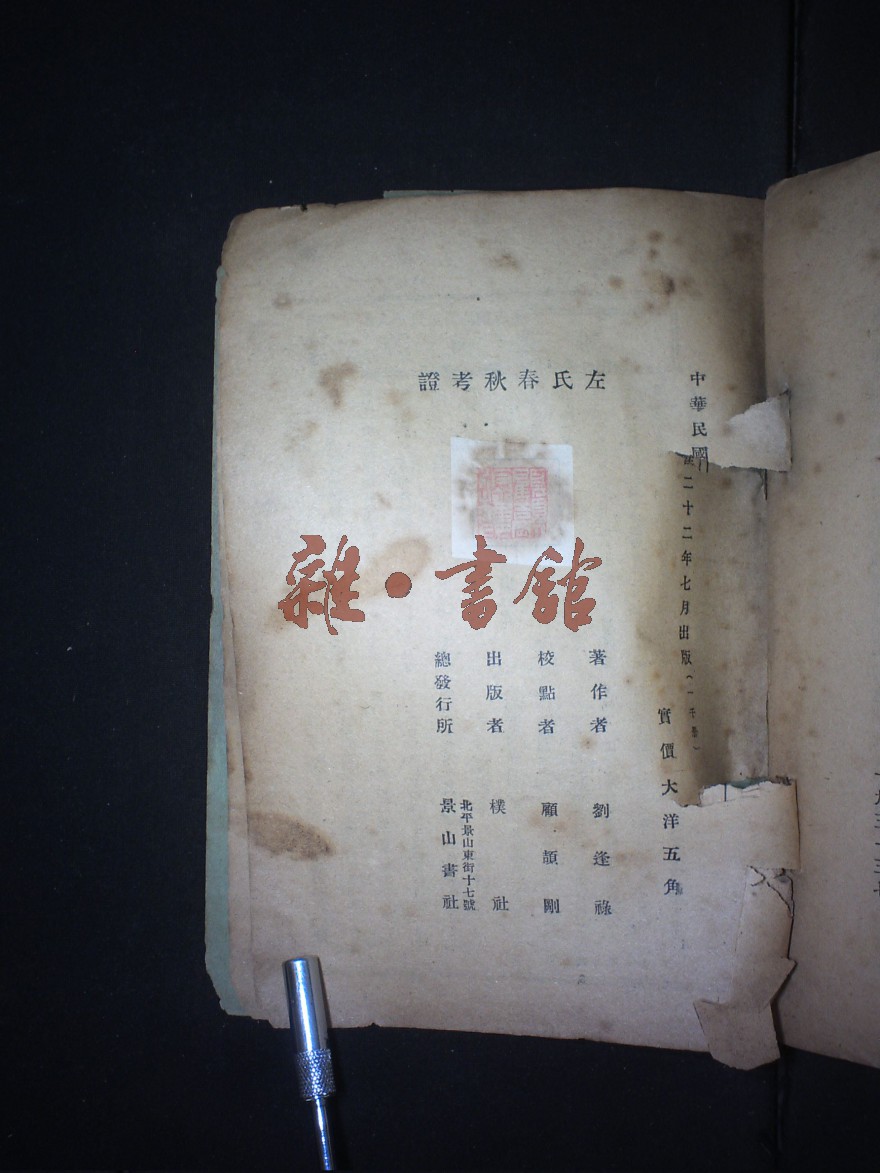 中華民國二十二年七月出版(一千册)
實價大洋五角
左氏春秋考證
著作者 劉逢祿
校點者 顧頡剛
出版者 樸社
總發行所 北平景山東街十七號 景山書社
雜·書館